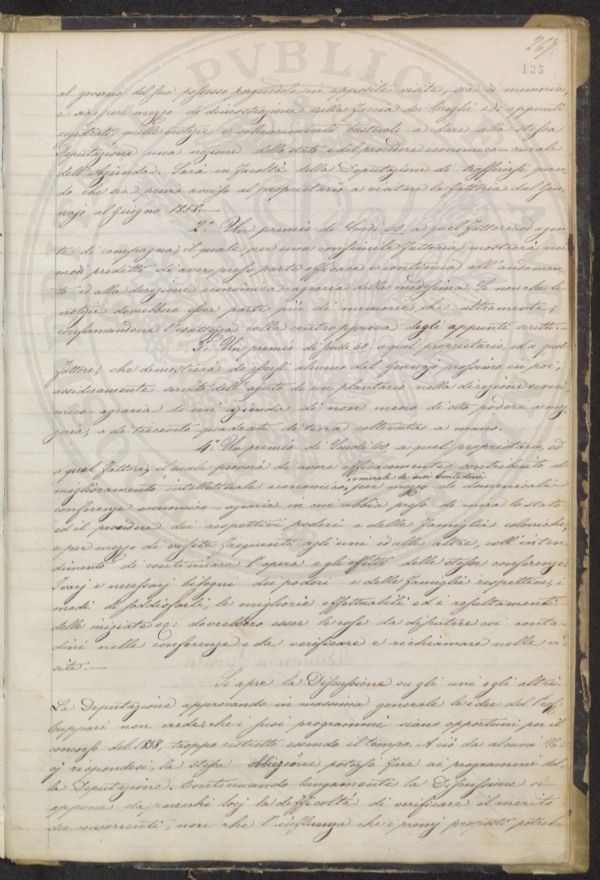 267.
135
al governo del suo possesso rammostre in apposite visite, sia di memoria,
o sia per mezzo di dimostrazione sulla faccia dei luoghi e di appunti
quelle notizie e schiarimenti bastevoli a dare alla stessa
Deputazione una ragione dello stato e del procedere economico-rurale
dell'Azienda. Sarà in facoltà della Deputazione di trasferirsi quan-
do che sia previo avviso al proprietario a visitare la fattoria dal Gen-
najo al Giugno 1858.—
2.° Un premio di Scudi 40 a quel fattore, od agen-
te di campagna, il quale, per una consimile fattoria, mostrerà nei
modi predetti di aver preso parte efficace e continua all'andamen-
to ed alla direzione economica-agraria della medesima. Se non che le
notizie dovrebbero esser parte più di memorie che altramente,
confermandone l'esattezza colla contropprova degli appunti scritti.—
3.° Un premio di scudi 60 a quel proprietario, od a quel
fattore, che dimostrerà da essersi almeno dal Gennajo prossimo in poi,
assiduamente servito dell'ajuto di un plantario nella direzione econo-
mico-agraria di un'azienda di non meno di otto poderi a mez-
zeria, o de trecento quadrati di terra coltivati a mano.
4.° Un premio di Scudi 60 a quel proprietario, od
a quel fattore, il quale provi di avere efficacemente contribuito al
e morale de suoi Contadini
miglioramento intellettuale economico, per mezzo di domenicali
conferenze economico-agrarie in cui abbia preso di mira lo stato
ed il procedere dei rispettivi poderi e delle famiglie coloniche,
o per mezzo di visite frequenti agli uni ed alle altre, coll'inten-
dimento di continuare l'opera e gli effetti delle stesse conferenze.
I varj e necessarj bisogni dei poderi e delle famiglie rispettive, i
modi di soddisfarli, le migliorie effettuabili ed i resultamenti
delle iniziate ec: dovrebbero esser le cose da disputare coi conta-
dini nelle conferenze e da verificare e richiamare nelle vi-
site.—
Si apre la Discussione su gli uni e gli altri.
La Deputazione approvando in massima generale le idee del
Cuppari non crede, che i suoi programmi siano opportuni per il
concorso del 1858, troppo ristretto essendo il tempo. A ciò da alcuni So-
cj rispondesi, la stessa obbiezione potersi fare ai programmi del-
la Deputazione. Continuando lungamente la Discussione si
oppone da parecchi Socj la difficoltà di verificare il merito
dei concorrenti, non che l'influenza che i premj proposti potreb-